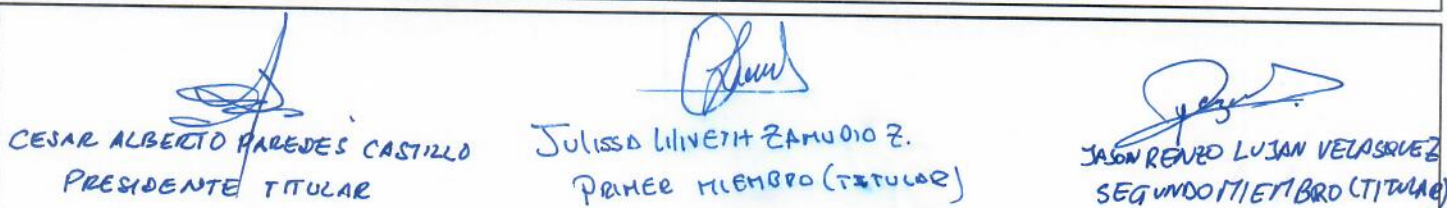 CESAR ALBERTO PAREDES CASTILLO
PRESIDENTE TITULAR
JULISSA LILIVETH ZAMUDIO Z.
PRIMER MIEMBRO (TITULAR)
JASON RENZO LUJAN VELASQUEZ
SEGUNDO MIEMBRO (TITULAR)